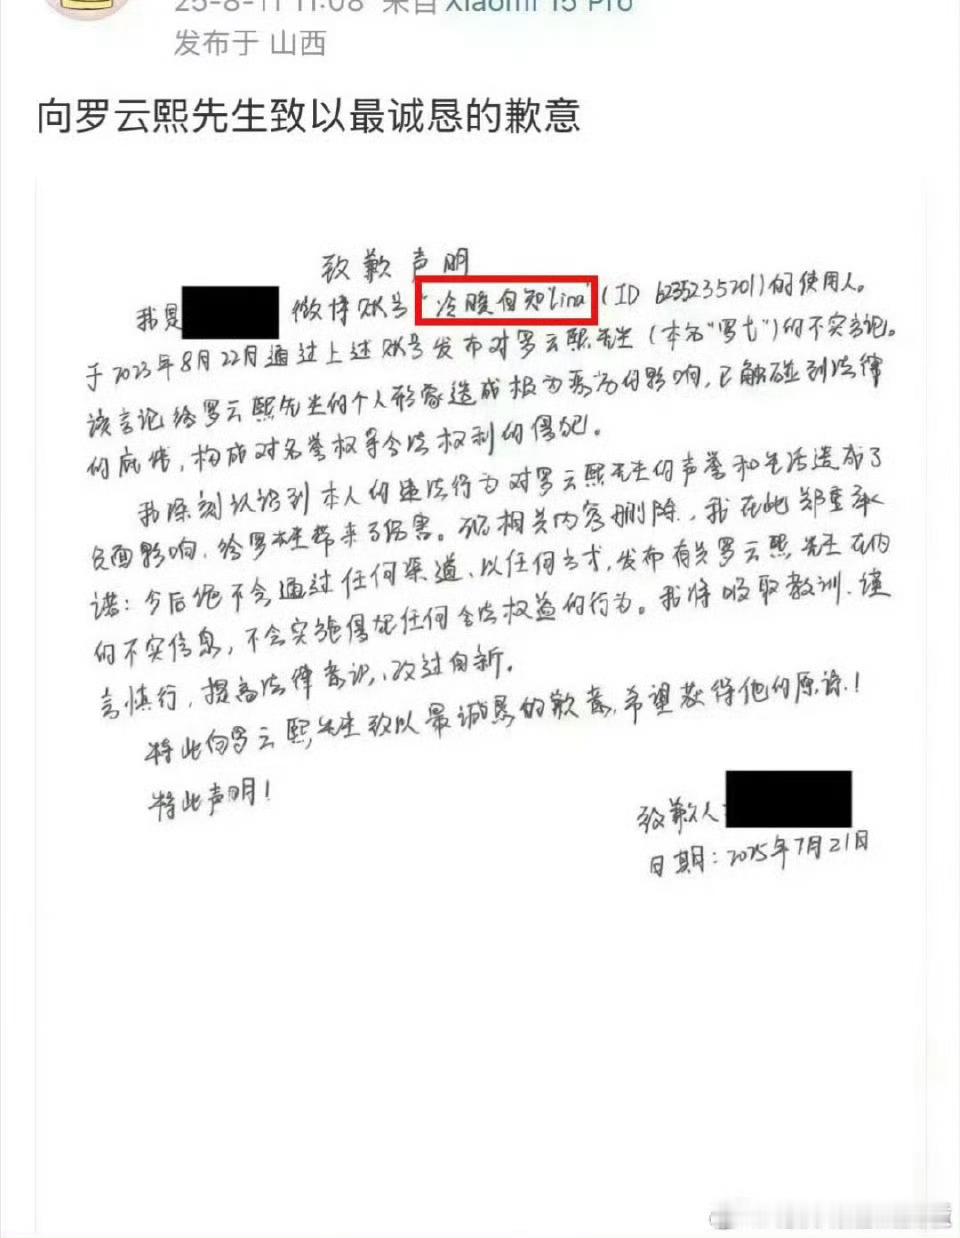 25-8-11 11:08 来自 Xiaomi 15 Pro
发布于 山西
向罗云熙先生致以最诚恳的歉意
致歉声明
我是 微博账号"冷暖自知lina"(ID 6235235701)的使用人。
于2023年8月22日通过上述账号发布对罗云熙先生(本名"罗弋")的不实言论。
该言论给罗云熙先生的个人形象造成极为恶劣的影响,已触碰到法律
的底线,构成对名誉权等合法权利的侵犯。
我深刻认识到本人的违法行为对罗云熙先生的声誉和生活造成了
负面影响,给罗先生带来了伤害。现相关内容删除,我在此郑重承
诺:今后绝不会通过任何渠道、以任何方式,发布有关罗云熙先生在内
的不实信息,不会实施侵犯任何合法权益的行为。我将吸取教训、谨
言慎行,提高法律意识、改过自新。
特此向罗云熙先生致以最诚恳的歉意,希望获得他的原谅!
特此声明!
致歉人:
日期:2025年7月21日